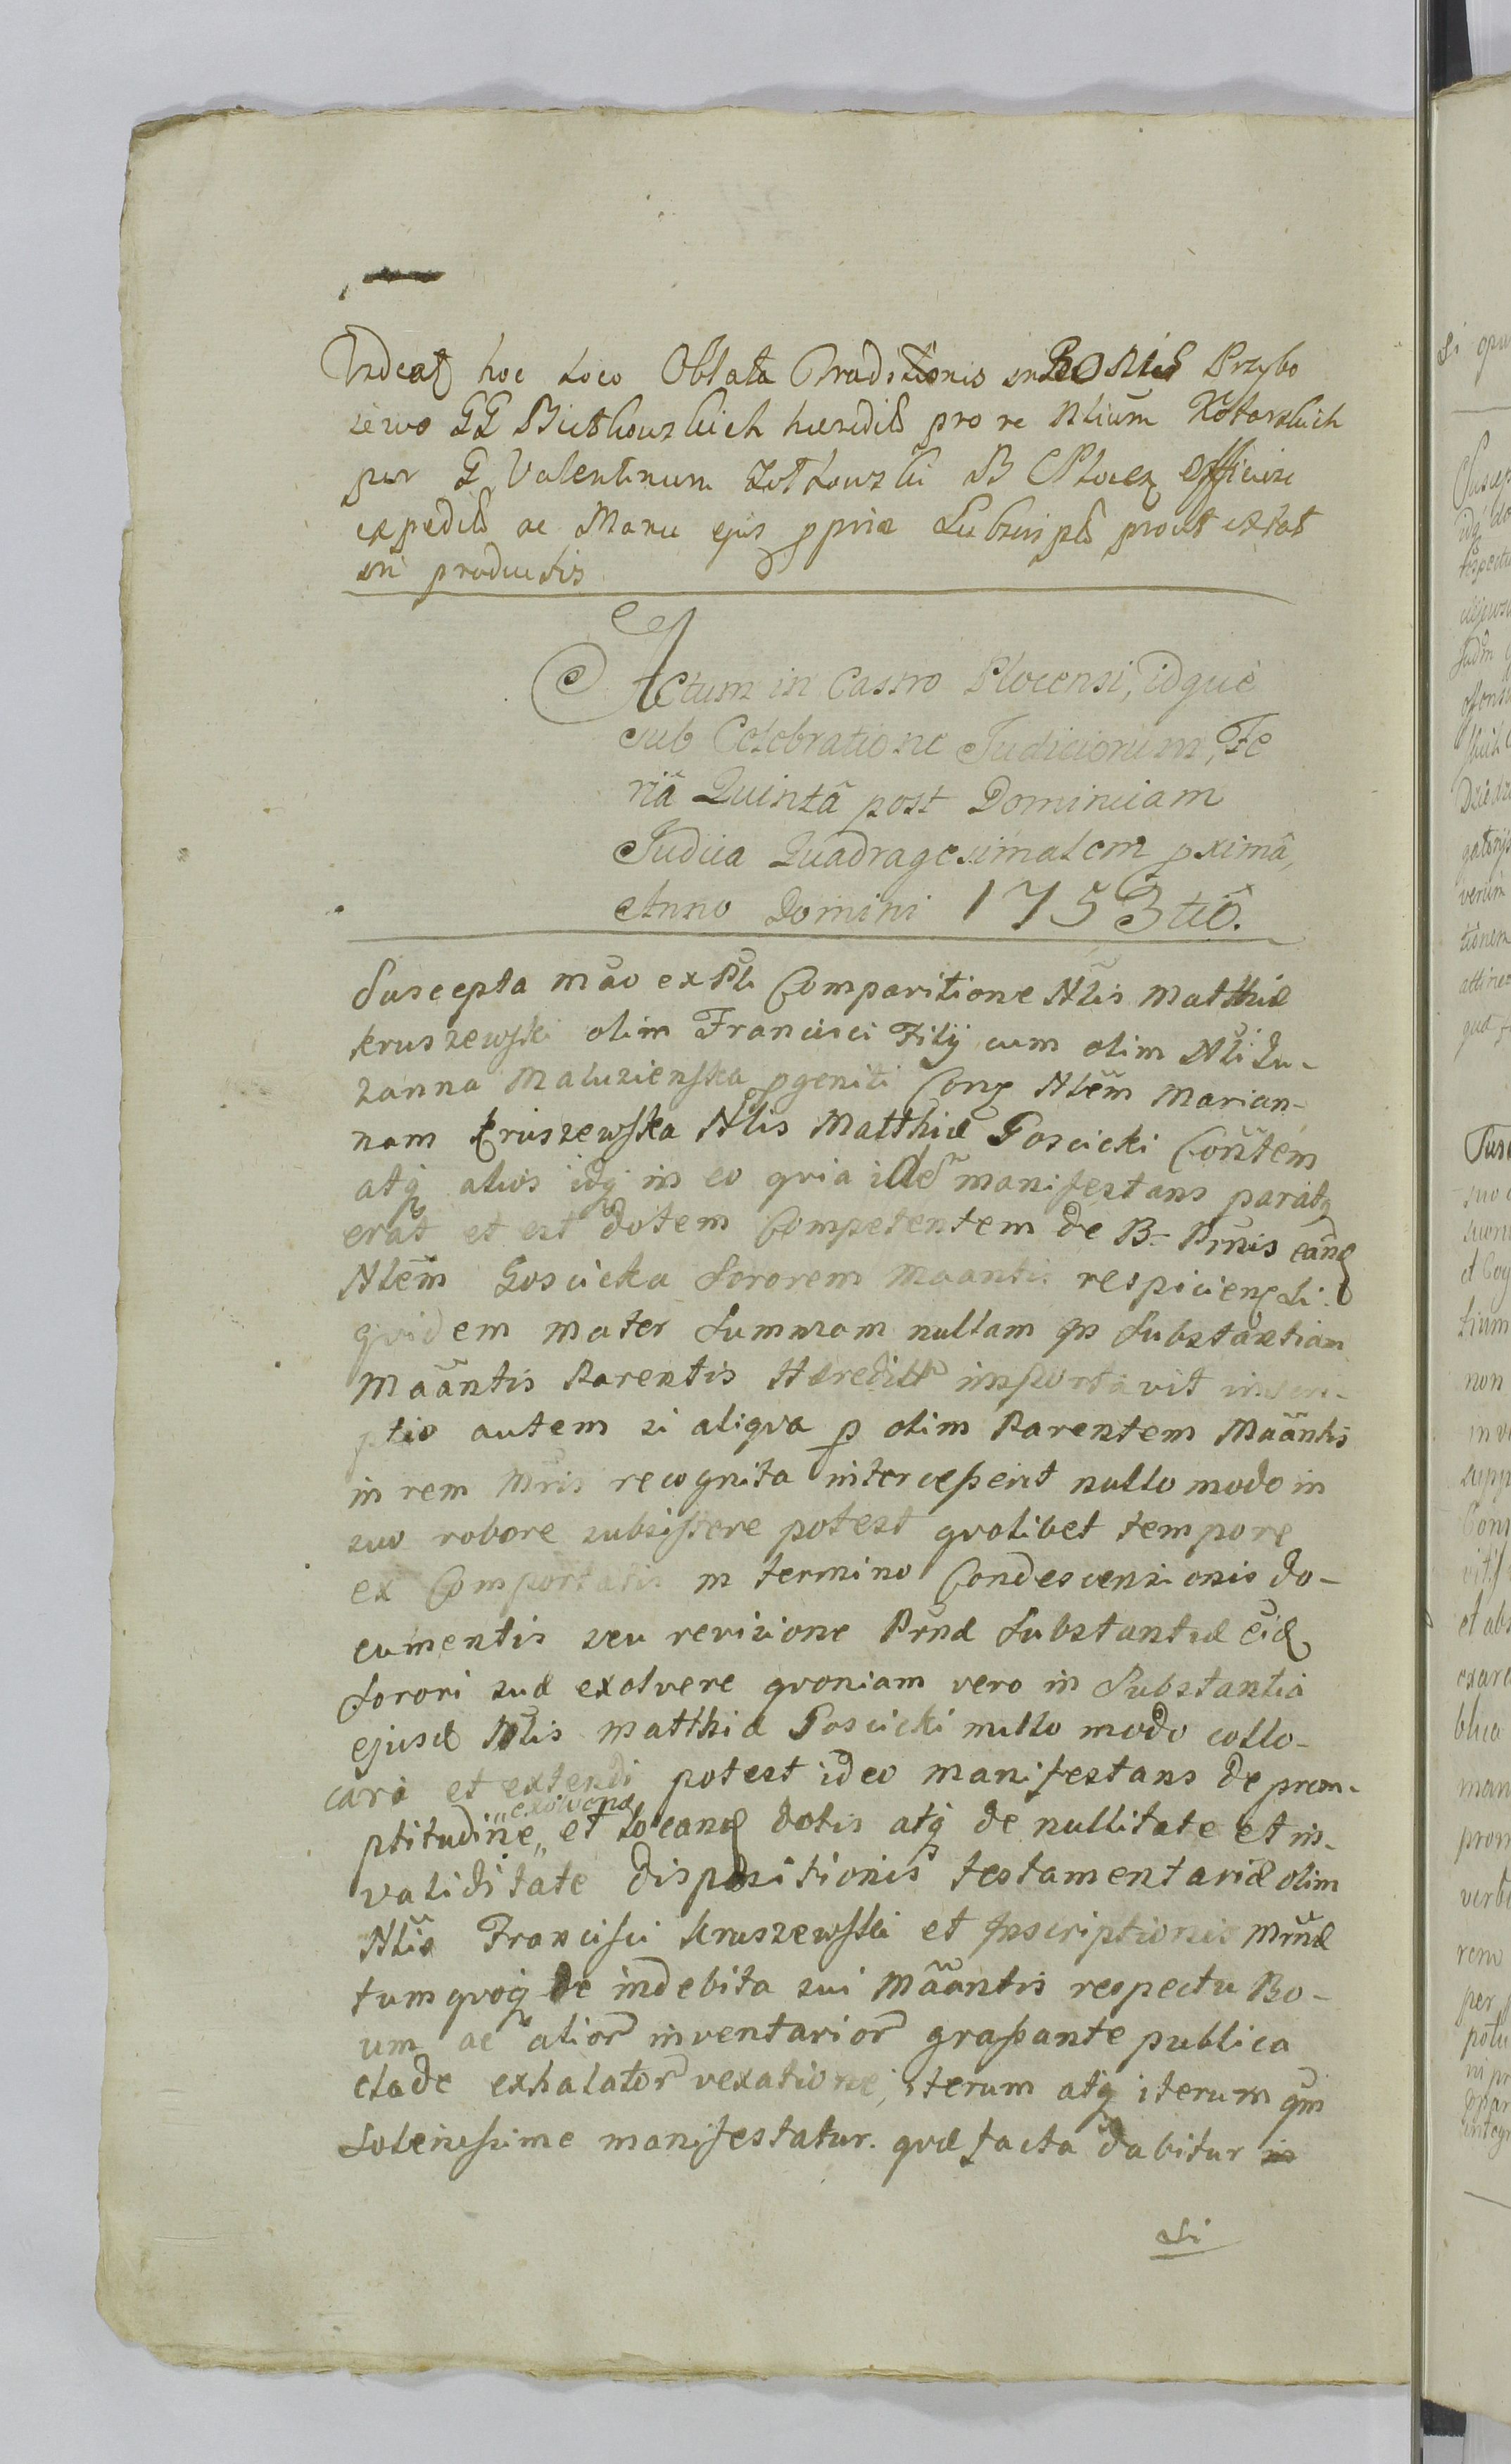 Indcat hoc Loco Oblata Traditionis in Bonis Przybo
iewo GG Bietkowskich hæredit pro re Nlium Kotarskich
per G Valentinum Zołtowski B Płocen Officiose
expedit ac Manu ejus ppria Subscript prout extat
in productis
Actum in Castro Plocensi, idque
sub Celebratione Judiciorum, Fe
riâ Quintâ post Dominicam
Judica Quadragesimalem pximâ,
Anno Domini 1753tiô.
Suscepta mão ex Pli Comparitione Nlis Matthiæ
Kruszewski olim Francisci Filij cum olim Nli Zu-
zanna Maluzienska pgeniti Cong Nlem Marian-
nam Kruszewska Nlis Matthiæ Goscicki Consťem
atq alios idq in eo quia ide manifestans paratq
erat et est dotem Competentem de B. Prnis eand
Nlem Goscicka Sororem Maantis respicien Si
quidem Mater Summam nullam in Substantiam
Mãantis Parentis Hæredit importavit inscri-
ptio autem si aliqva p olim Parentem Mãantis
in rem Mris recognita intercesserit nullo modo in
suo robore subsistere potest qvolibet tempore
ex Comportatis in termino Condescensionis do-
cumentis seu revisione Prnæ Substantiæ eid
Sorori suæ exolvere qvoniam vero in Substantia
ejusd Nlis Matthiæ Goscicki nullo modo collo-
cari et extendi potest ideo manifestans de prom-
ptitudine „exolvend„ et locand dotis atq de nullitate et in-
validitate dispositionis testamentariæ olim
Nlis Francisci Kruszewski et Inscriptionis Mrnæ
tum qvoq de indebita sui Mãantis respectu Bo-
um ac alior inventarior grassante publica
clade exhalator vexatione, iterum atq iterum qm
Solenissime manifestatur. qvæ facta dabitur in
Si